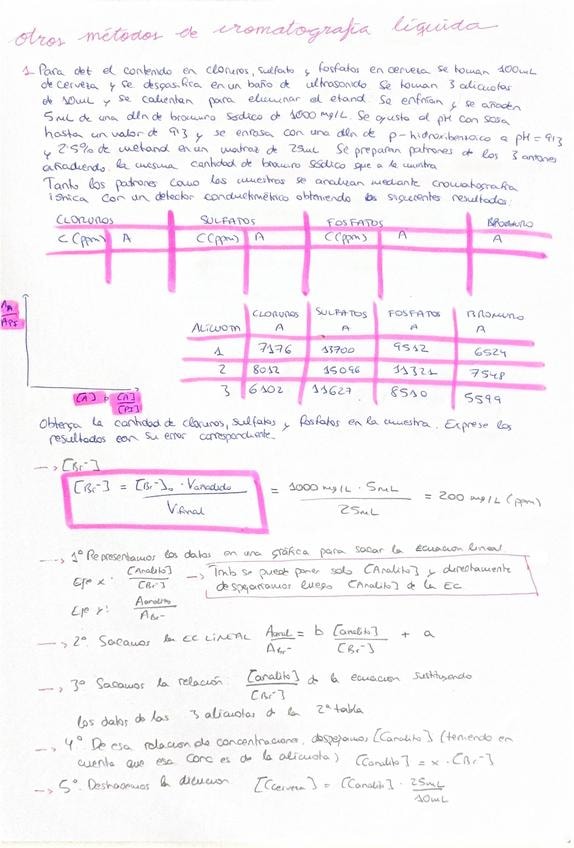 Otros métodos de cromatografía líquida
1. Para det el contenido en cloruros, sulfato y fosfatos en cerveza se toman 100mL
de cerveza y se desgasifica en un baño de ultrasonido. Se toman 3 alicuotas
de 10mL y se calientan para eliminar el etanol. Se enfrían y se añaden
5mL de una dln de bromuro sódico de 1000 mg/L. Se ajusta el pH con sosa
hasta un valor de 9'3 y se enrasa con una dln de p-hidroxibenzoico a pH = 9'3
y 2'5% de metanol en un matraz de 25mL. Se preparan patrones de los 3 aniones
añadiendo la misma cantidad de bromuro sódico que a la muestra
Tanto los patrones como las muestras se analizan mediante cromatografía
iónica con un detector conductimétrico obteniendo los siguientes resultados:
CLORUROS SULFATOS FOSFATOS BROMURO
C (ppm) A C(ppm) A C(ppm) A A
AA
API
[A] o [A]
[PI]
CLORUROS SULFATOS FOSFATOS BROMURO
ALICUOTA A A A A
1 7176 13700 9512 6524
2 8012 15096 11321 7548
3 6102 11627 8510 5599
Obtenga la cantidad de cloruros, sulfatos y fosfatos en la muestra. Exprese los
resultados con su error correspondiente.
→ [Br-]
[Br-] = [Br-]o · Vañadido / Vfinal = 1000 mg/L · 5mL / 25mL = 200 mg/L (ppm)
→ 1º Representamos los datos en una gráfica para sacar la ecuación lineal
Eje x: [Analito] / [Br-] → Tmb se puede poner solo [Analito] y directamente
despejaríamos luego [Analito] de la EC
Eje y: Aanalito / ABr-
→ 2º Sacamos la EC LINEAL Aanal / ABr- = b [analito] / [Br-] + a
→ 3º Sacamos la relación [analito] / [Br-] de la ecuacion sustituyendo
los datos de las 3 alicuotas de la 2ª tabla
→ 4º De esa relacion de concentraciones, despejamos [analito] (teniendo en
cuenta que esa conc es de la alicuota) [analito] = x · [Br-]
→ 5º Deshacemos la dilucion [Ccerveza] = [analito] · 25mL / 10mL